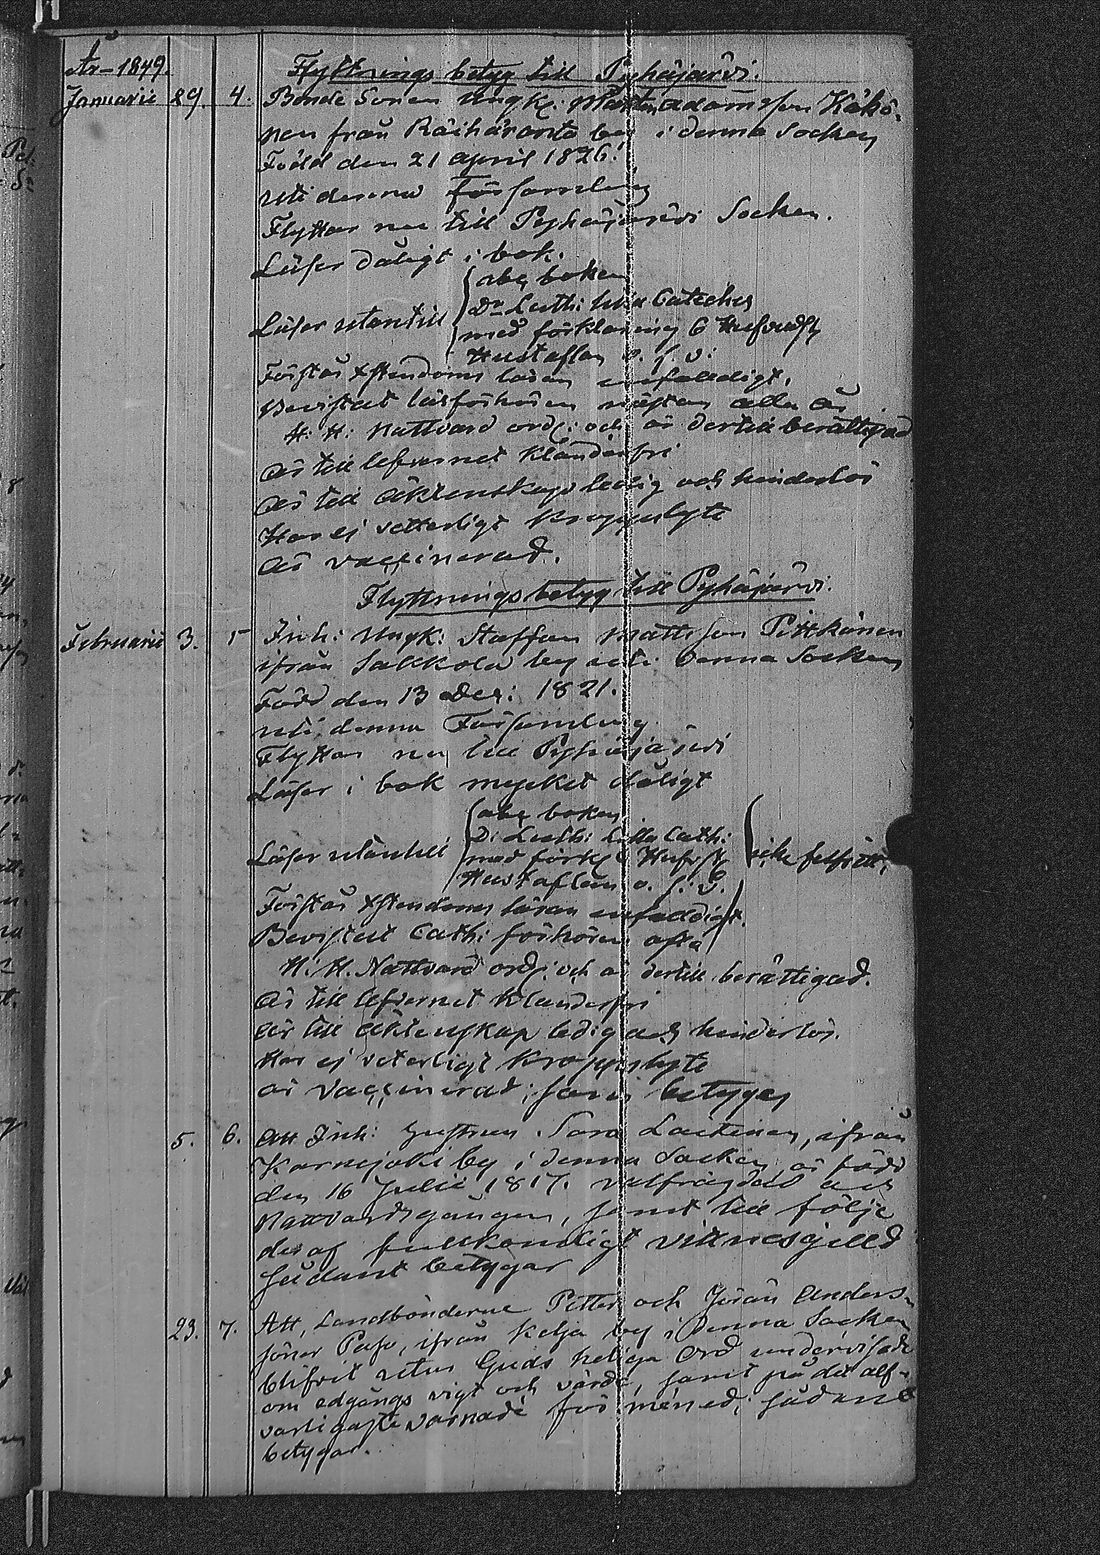 År 1849.
Flyttnings betyg till Pyhäjärvi.
Januarii 29. 4. Bonde Sonen Ungk: Adamsson Käkö-
nen från Räihäranta by i denna Socken
Född den 21 April 1826.
uti denna Församling
Flyttar nu till Pyhäjärvi Socken.
Läser dåligt i bok.
abc boken
Läser utantill Dr Luth: lilla Cateches
med förklaring 6 Hufvudst
Hustaflan o. s. v.
Förstår Xstendoms läran enfaldigt.
Bevistat läsförhören nästan alla år
H: H: Nattvard ord: och är dertill berättigad
är till lefvernet klanderfri
är till Äktenskap ledig och hinderlös
Har ej vetterligt kroppslyte
är vaccinerad.
Flyttnings betyg till Pyhäjärvi.
Februarii 3. 5 Inh: Ungk: Staffan Mattsson Pitkänen
ifrån Sakkola by uti denna Socken
Född den 13 Dec: 1821.
uti denna Församling
Flyttar nu till Pyhäjärvi
Läser i bok mycket dåligt
abc boken
Läser utantill D: Luth: lilla Cath:
med förkl 6 Hufvst
Hustaflan o. s. v.
icke felfritt;
Förstår Xstendoms läran enfaldigt.
Bevistat Cath: förhören ofta
H. H. Nattvard ord: och är dertill berättigad.
är till lefvernet klanderfri
är till Äktenskap ledig och hinderlös.
Har ej veterligt kroppslyte
är vaccinerad; betyges
5. 6. Att Inh: Hustrun Sara, ifrån
by i denna Socken är född
den 16 Julii 1817. välfrägdad och
Nattvardsgången, samt till följe
deraf fullkomligt vittnesgilld
sådant betygar
23. 7. Att, Landbönderne Petter och Jöran Anders-
söner, ifrån Kelja by i denna Socken
blifvit utur Guds heliga Ord underviste
om edgångs vigt och värde, samt på det all-
varligaste varnade för mened; sådant
betygar.